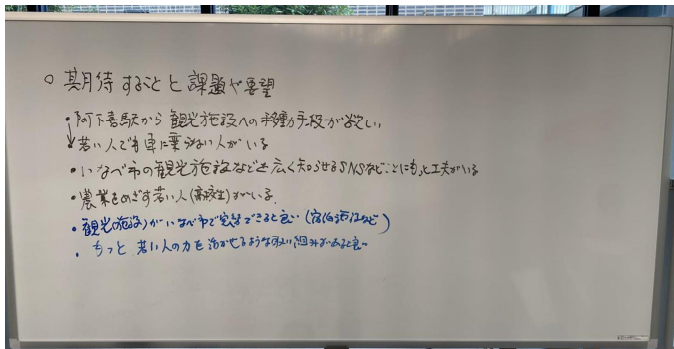 ○ 期待することと課題や要望
・阿下喜駅から観光施設への移動手段が欲しい
↓若い人でも車に乗らない人がいる
・いなべ市の観光施設などを広く知らせるSNSなどことにもっと工夫がいる
・農業をめざす若い人(高校生)がいる。
・観光(施設)がいなべ市で完結できると良い(宿泊施設など)
・もっと若い人の力を活かせるような取り組みがあると良い